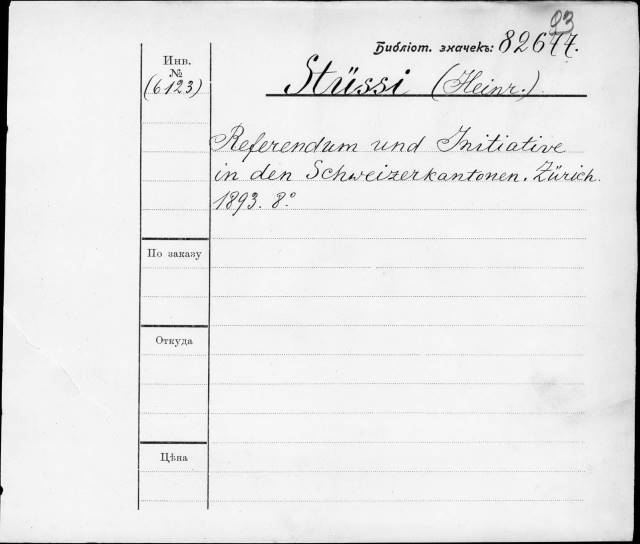 23
Библіот. значекъ: 82644.
Инв.
№
(6123)
Stüssi (Heinr.)
Referendum und Initiative
in den Schweizerkantonen. Zürich.
1893. 8°
По заказу
Откуда
Цѣна